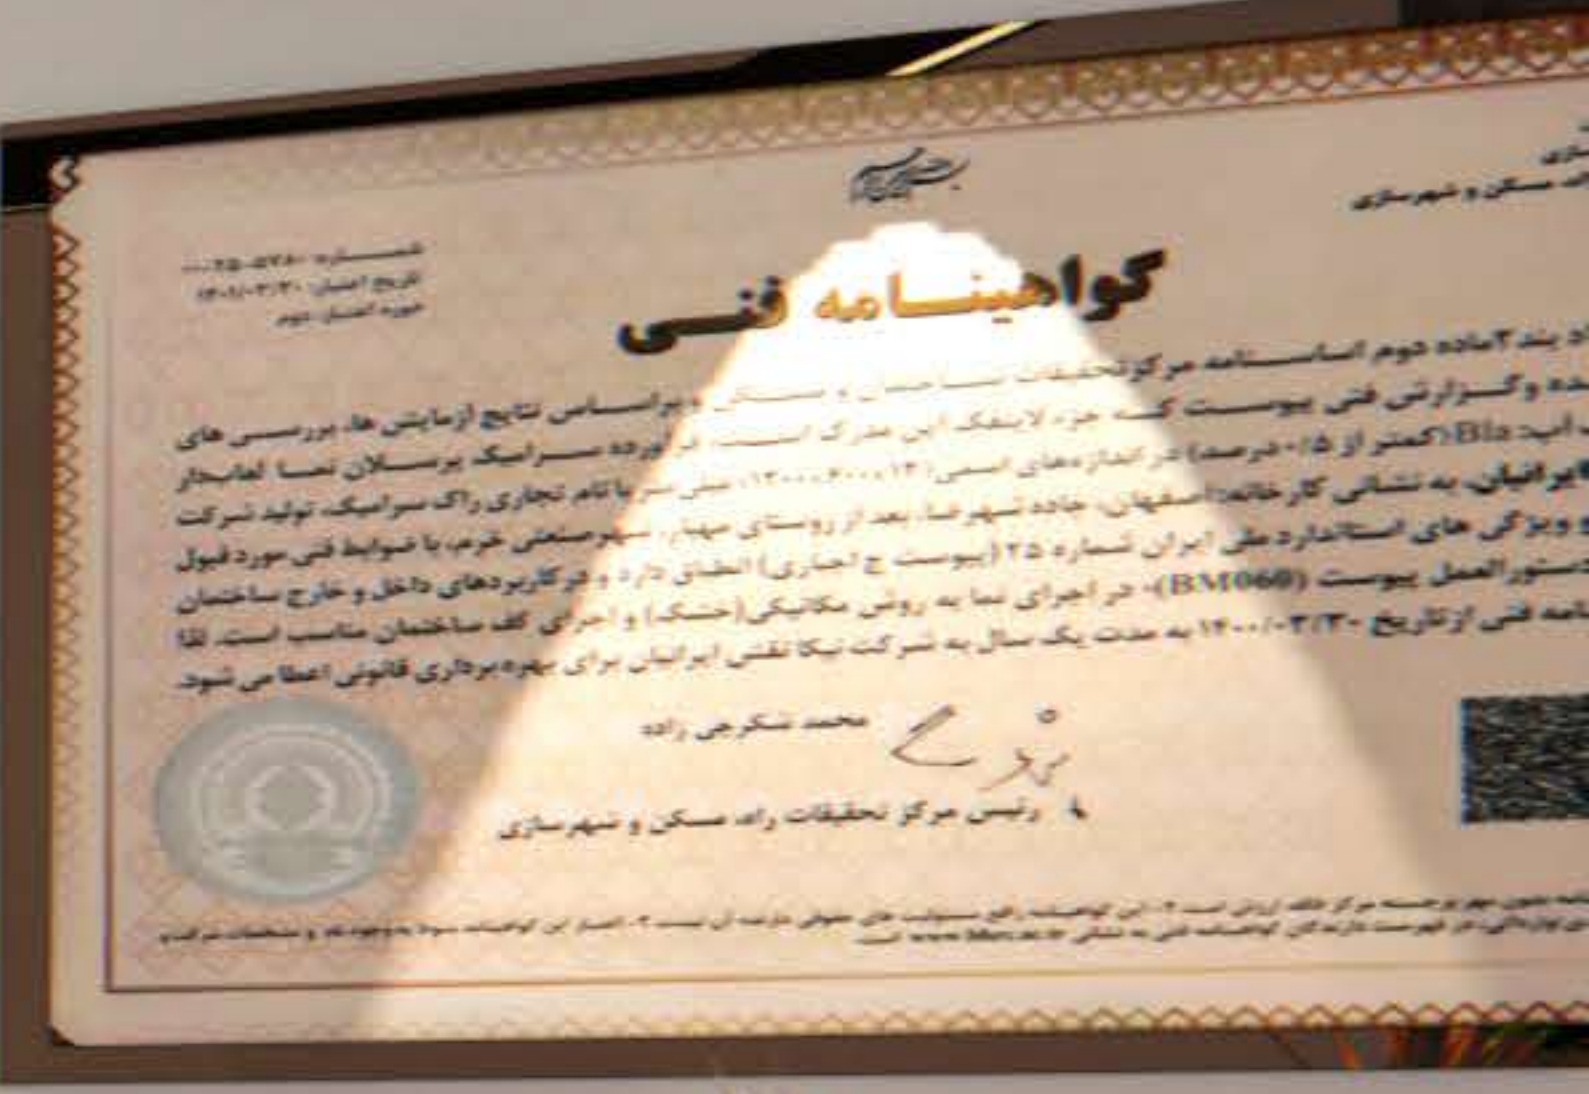 بسم الله الرحمن الرحیم
مسکن و شهرسازی
شماره:
تاریخ اعتبار: ۱۴۰۱/۰۳/۳۰
دوره اعتبار: دوم
گواهینامه فنی
بند ۳ ماده دوم اساسنامه مرکز تحقیقات ساختمان و مسکن و براساس نتایج آزمایش ها، بررسی های
وگزارش فنی پیوست که جزء لاینفک این مدرک است، فرآورده سرامیک پرسلان نما لعابدار
آب: BIa (کمتر از ۰/۵ درصد) در اندازه‌های اسمی با نام تجاری راک سرامیک، تولید شرکت
ایرانیان، به نشانی کارخانه: اصفهان، جاده شهرضا، بعد از روستای مهیار، شهرصنعتی خرم، با ضوابط فنی مورد قبول
و ویژگی های استاندارد ملی ایران شماره ۲۵ (پیوست ج اجباری) انطباق دارد و در کاربردهای داخل و خارج ساختمان
دستورالعمل پیوست (BM060)، در اجرای نما به روش مکانیکی (خشک) و اجرای کف ساختمان مناسب است. لذا
فنی از تاریخ ۱۴۰۰/۰۳/۳۰ به مدت یک سال به شرکت نیکا نقش ایرانیان برای بهره برداری قانونی اعطا می شود.
محمد شکرچی زاده
رئیس مرکز تحقیقات راه، مسکن و شهرسازی